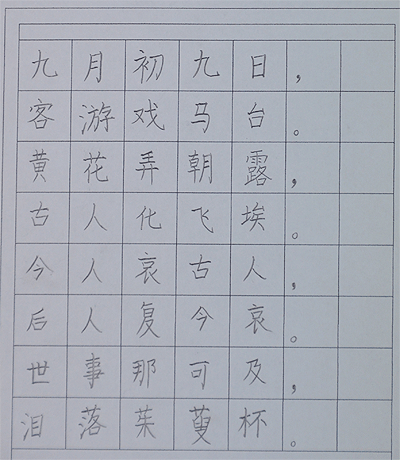 九月初九日，
客游戏马台。
黄花弄朝露，
古人化飞埃。
今人哀古人，
后人复今哀。
世事那可及，
泪落茱萸杯。